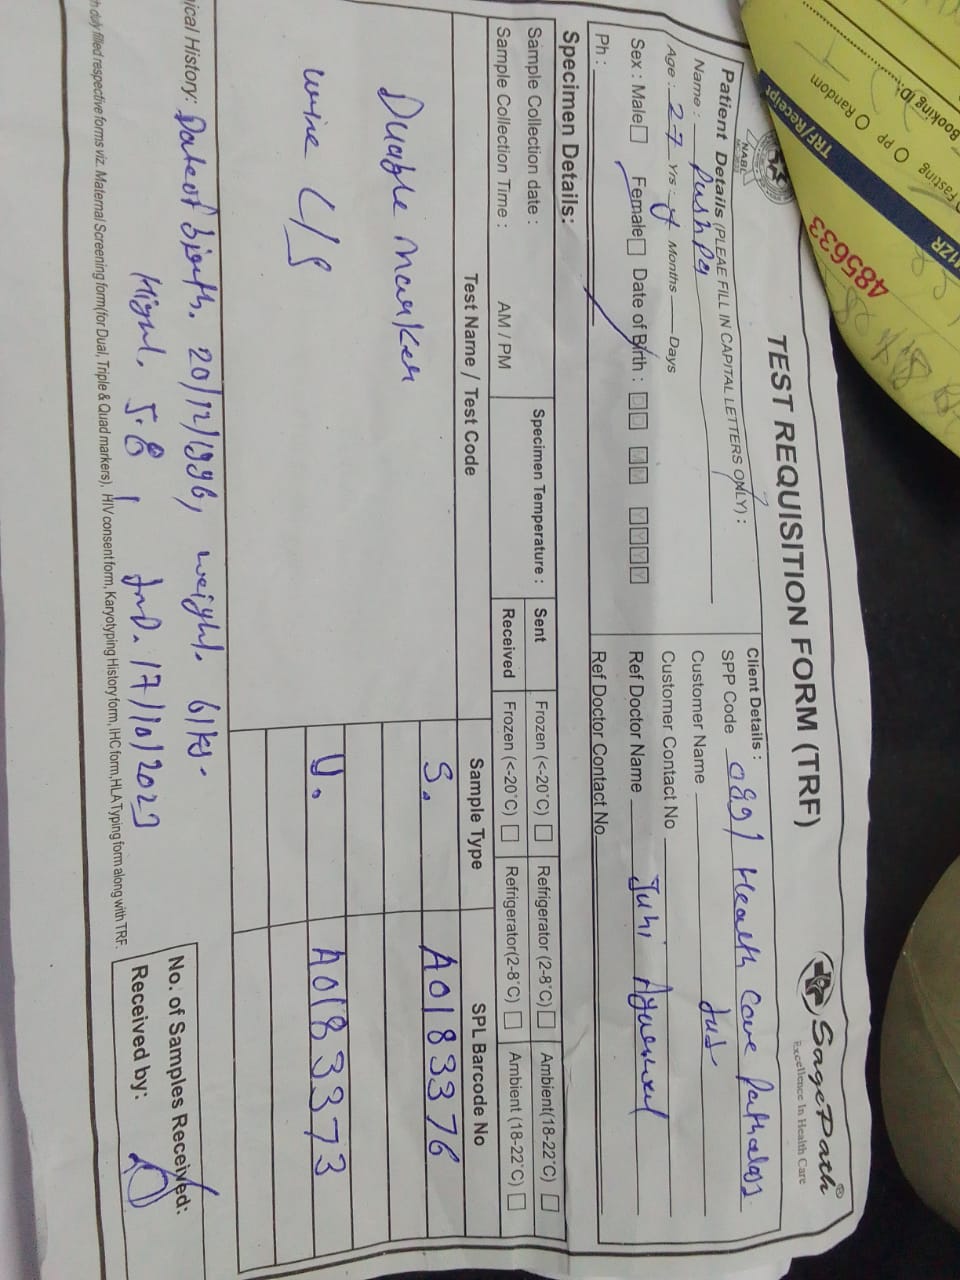 TEST REQUISITION FORM (TRF)
SagePath®
Excellence In Health Care
NABL
Patient Details (PLEAE FILL IN CAPITAL LETTERS ONLY) :
Name : Pushpa
Age : 27 Yrs Months Days
Sex : Male Female Date of Birth : DD MM YYYY
Ph :
Client Details :
SPP Code 0891 Health Care
Customer Name
Customer Contact No
Ref Doctor Name Juhi
Ref Doctor Contact No
Specimen Details:
Sample Collection date :
Sample Collection Time : AM / PM
Specimen Temperature :
Sent Frozen (<-20°C) Refrigerator (2-8°C) Ambient(18-22°C)
Received Frozen (<-20°C) Refrigerator(2-8°C) Ambient (18-22°C)
Test Name / Test Code Sample Type SPL Barcode No
Duable Marker S. A0183376
Urine C/S U. A0183373
ical History: Date of birth. 20/12/1996, weight. 61kg.
Hight. 5.8 17/10/2023
No. of Samples Received:
Received by:
h duly filled respective forms viz. Maternal Screening form(for Dual, Triple & Quad markers). HIV consent form, Karyotyping History form, IHC form, HLA Typing form along with TRF.
TRF/Receipt
485633
Booking ID:
Fasting PP Random